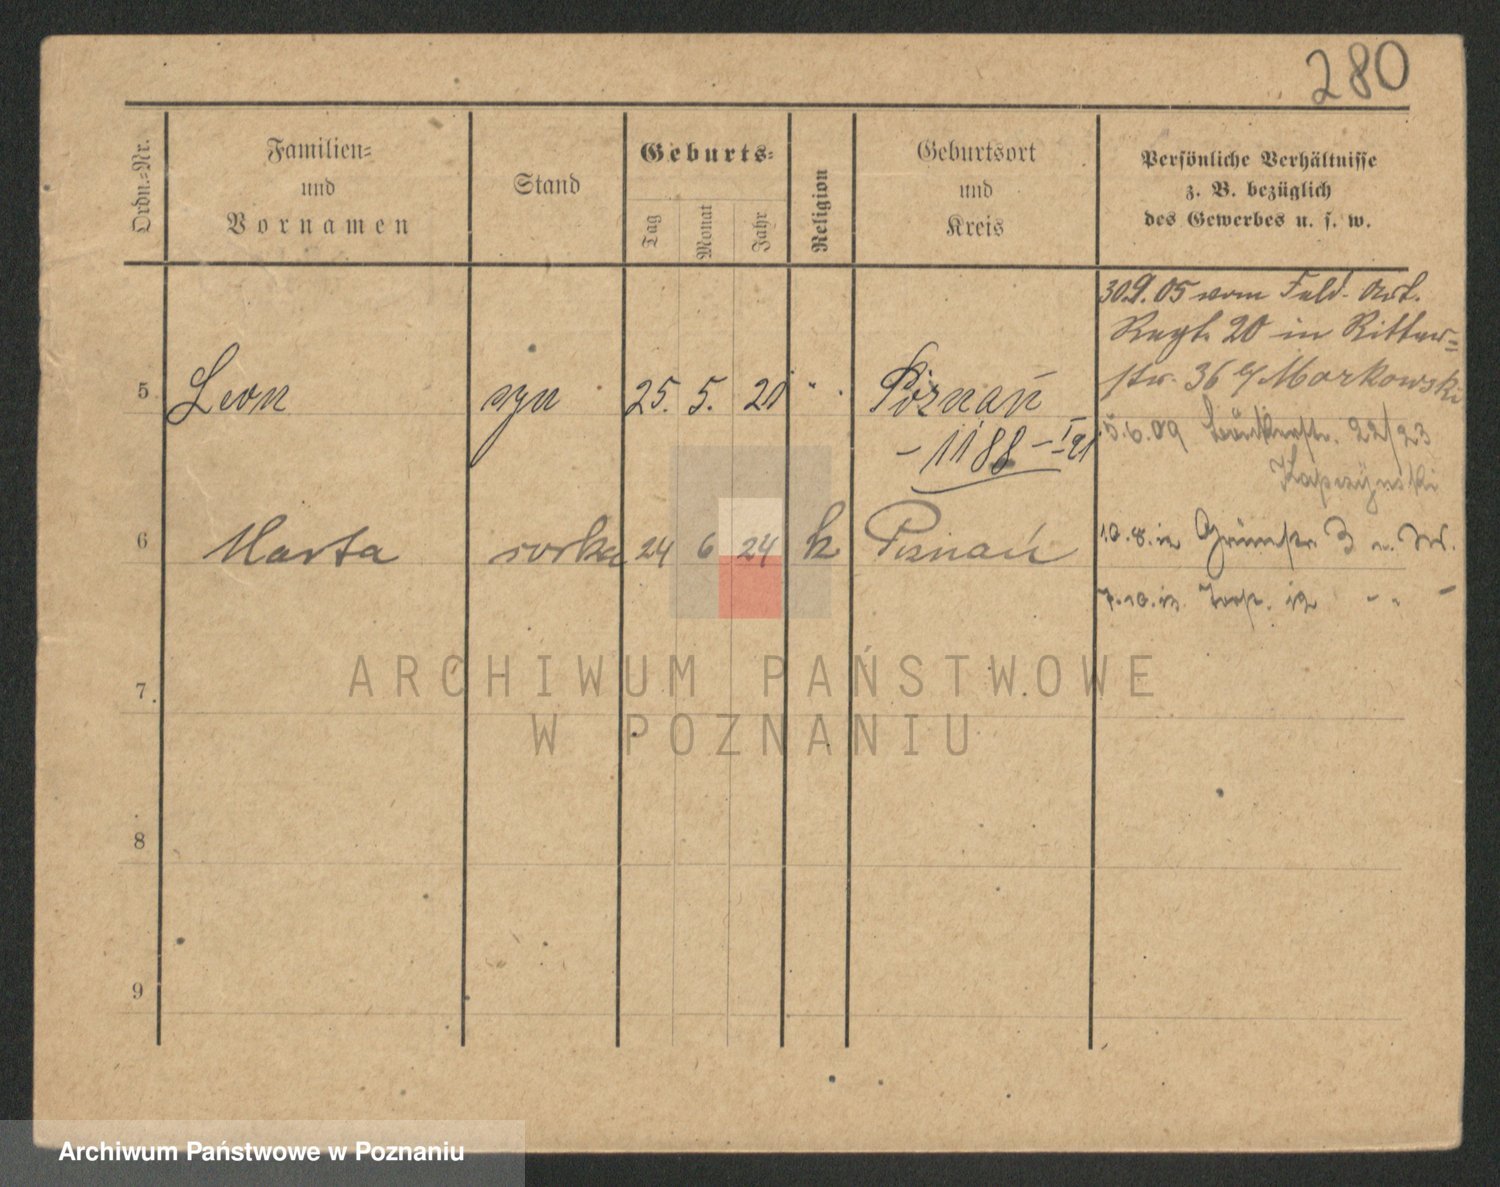 280
Ordn.-Nr.
Familien-
und
Vornamen
Stand
Geburts-
Tag
Monat
Jahr
Religion
Geburtsort
und
Kreis
Persönliche Verhältnisse
z. B. bezüglich
des Gewerbes u. s. w.
30.9.05 vom Feld- Art.
Regt. 20 in Ritter-
str. 36 b/ Morkowski
5 Leon syn 25. 5. 21 " . Poznań
5.6.09 22/23
- 1188 - I 21
Kapczyński
6 Marta córka 24 6 24 k Poznań
10.8.12 Grünstr. 3
7.10.12 12 " "
7.
8
9
ARCHIWUM PAŃSTWOWE
W POZNANIU
Archiwum Państwowe w Poznaniu